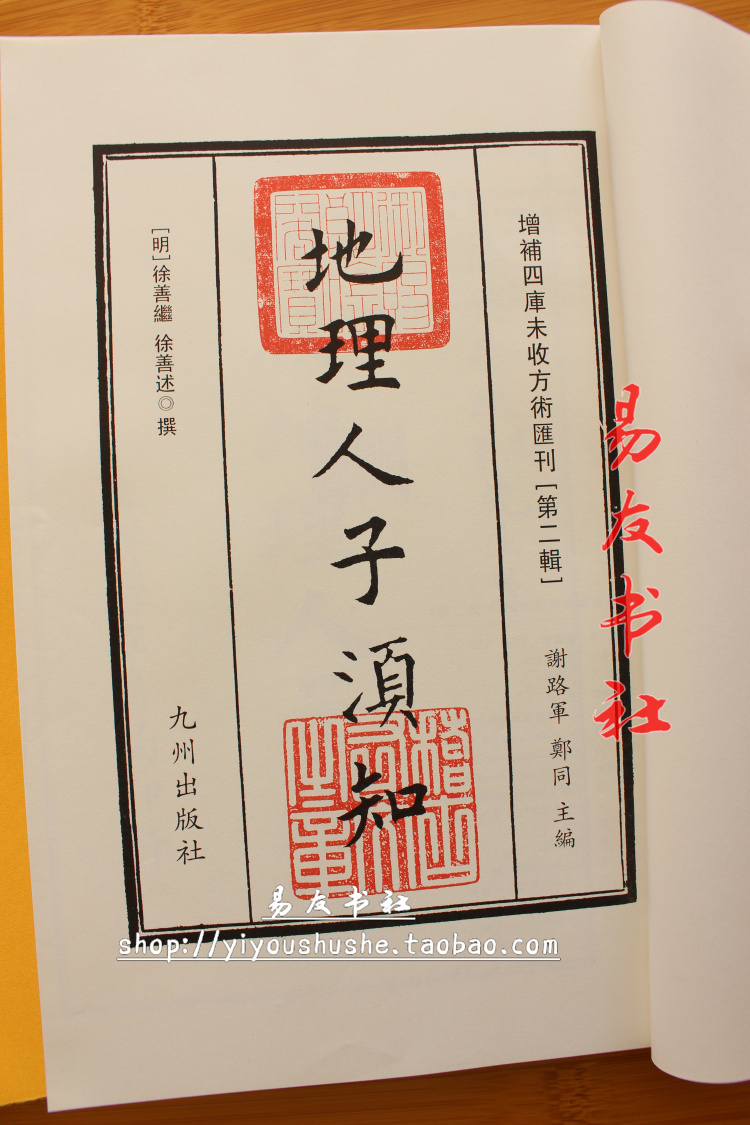 增補四庫未收方術匯刊［第二輯］
謝路軍 鄭同 主編
地理人子須知
［明］徐善繼 徐善述◎撰
九州出版社
易友书社
易友书社
shop://yiyoushushe.taobao.com